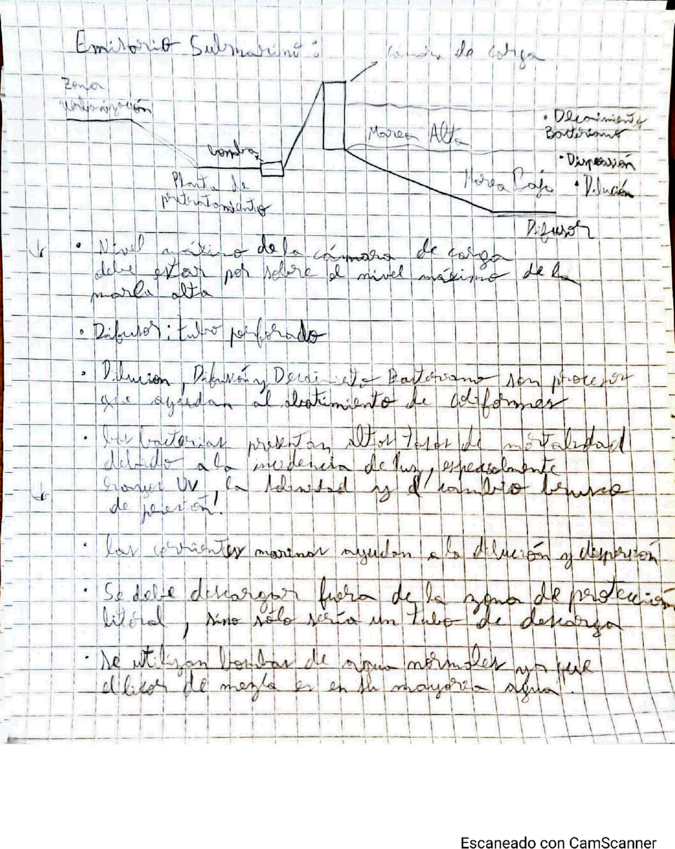 Emisorio Submarino:
cámara de carga
Zona
urbanización
bomba
Planta de
pretratamiento
Marea Alta
Marea Baja
• Decaimiento
Bacteriano
• Dispersión
• Dilución
Difusor
• Nivel máximo de la cámara de carga
debe estar por sobre el nivel máximo de la
marea alta
• Difusor: tubo perforado
• Dilucion, Difusión y Decaimieto Bacteriano son procesos
que ayudan al abatimiento de coliformes
• Las bacterias presentan altas tasas de mortalidad
debido a la incidencia de luz, especialmente
rayos UV, la salinidad y el cambio brusco
de presión.
• Las corrientes marinas ayudan a la dilución y dispersión
• Se debe descargar fuera de la zona de protección
litoral, sino sólo sería un tubo de descarga
• Se utilizan bombas de agua normales ya que
el licor de mezla es en su mayoría agua.
Escaneado con CamScanner